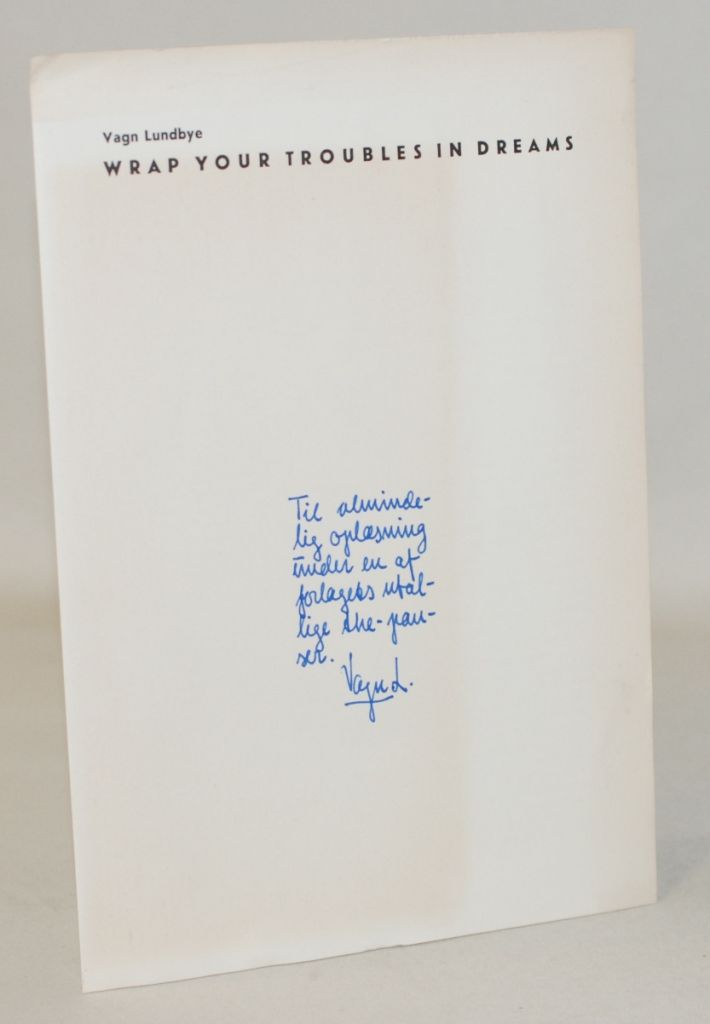 Vagn Lundbye
WRAP YOUR TROUBLES IN DREAMS
Til alminde-
lig oplæsning
under en af
forlagets utal-
lige the-pau-
ser.
Vagn L.